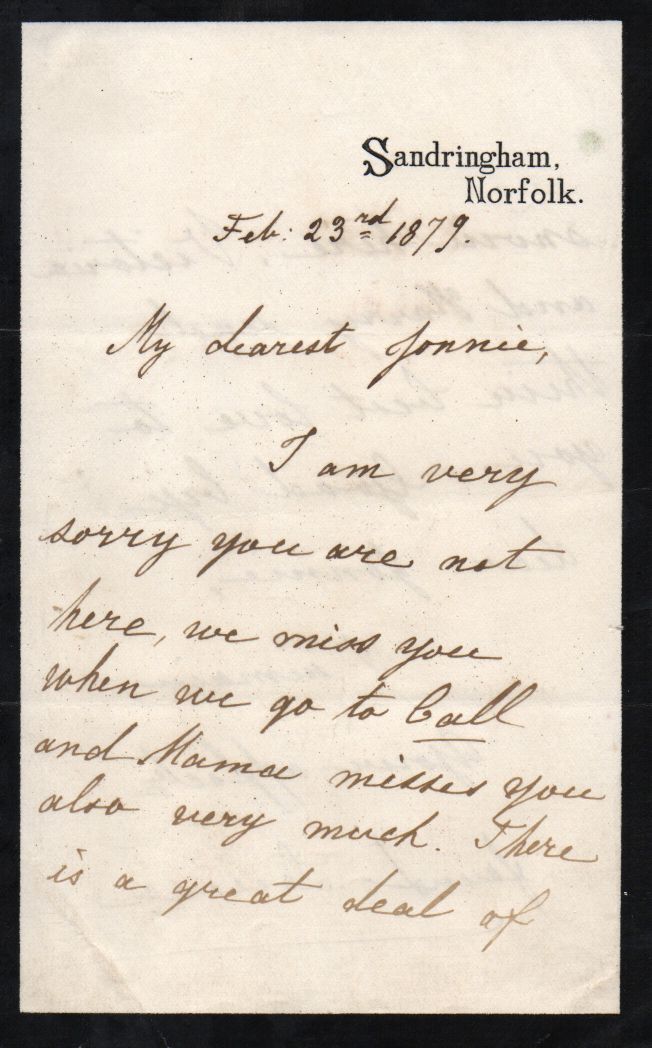 Sandringham,
Norfolk.
Feb: 23rd 1879.
My dearest Jonnie,
I am very
sorry you are not
here, we miss you
when we go to Call
and Mama misses you
also very much. There
is a great deal of